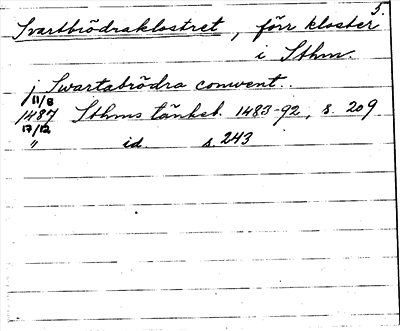 5.
Svartbrödraklostret, förr kloster
i Sthm.
j Swartabrödra convent..
11/8
1487 Sthms tänkeb. 1483-92, s. 209
17/12
" id. s. 243